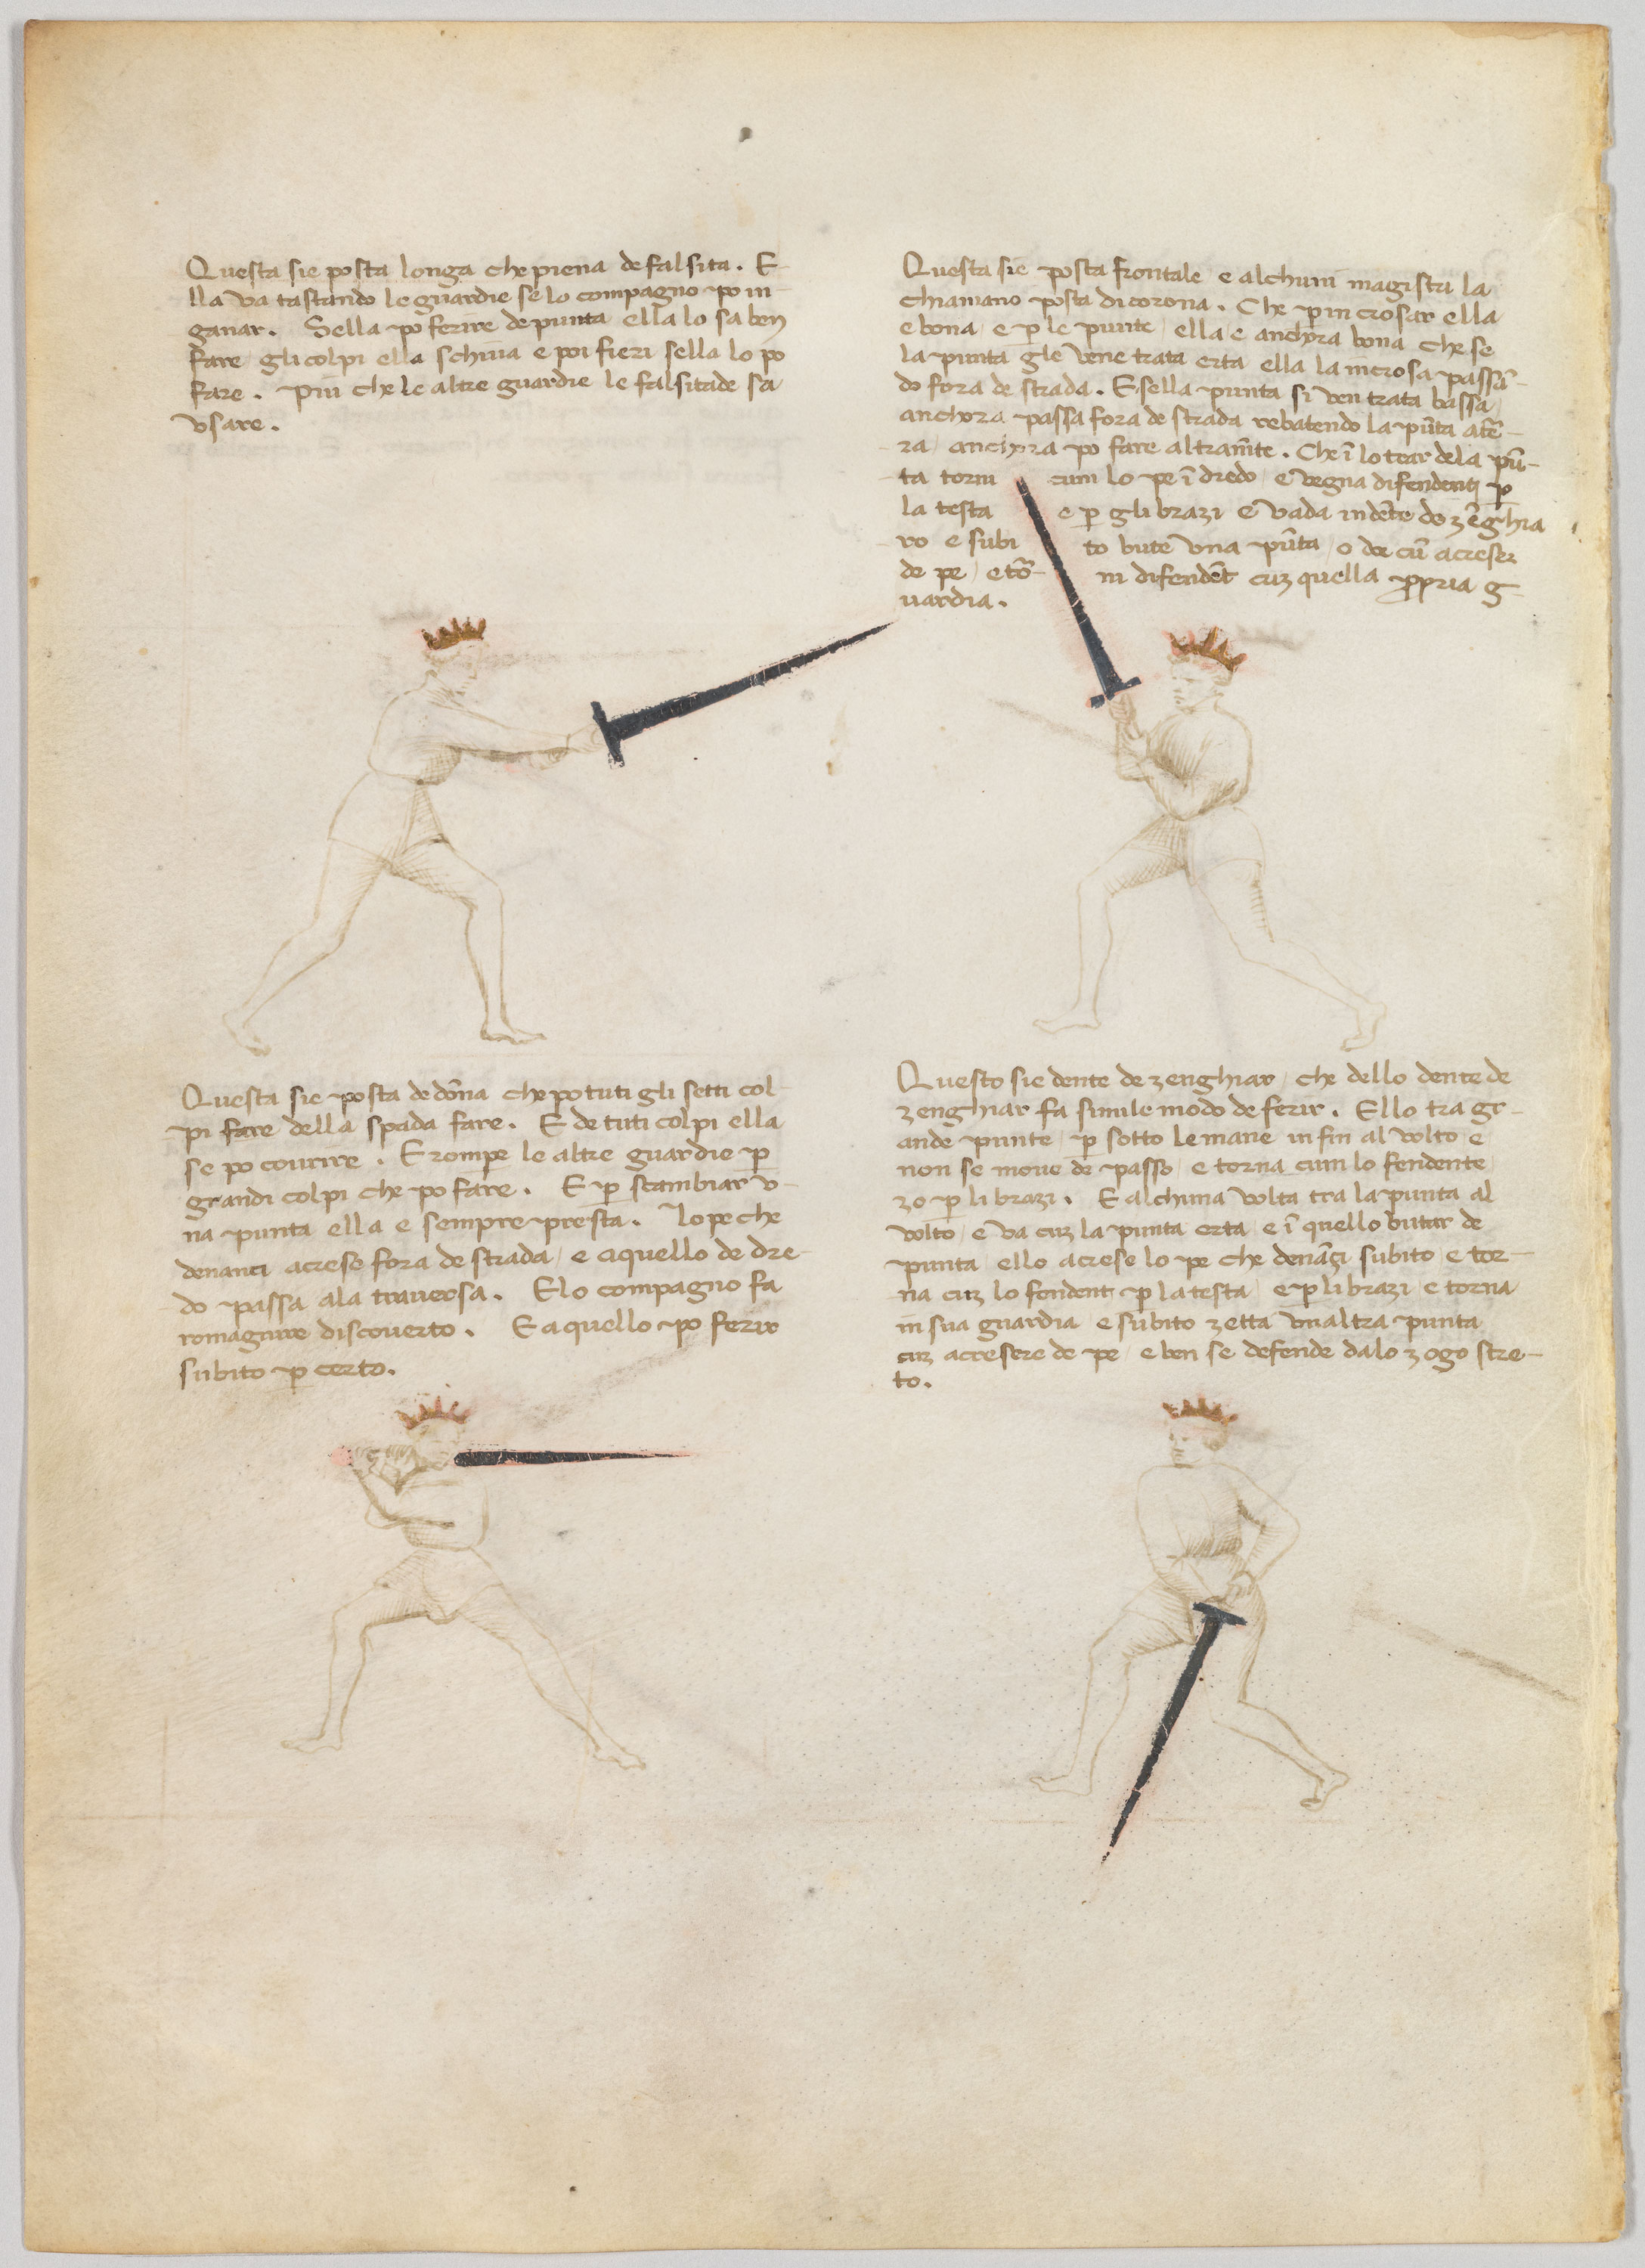 Questa sie posta longa che piena de falsita. E-
lla va tastando le guardie se lo compagno po in-
ganar. Sella po ferire de punta ella lo sa ben
fare gli colpi ella schiva e poi fieri sella lo po
fare. Piu che le altre guardie le falsitade sa
usare.
Questa sie posta frontale e alchuni magistri la
chiamano posta di corona. Che p incrosar ella
e bona e p le punte ella e anchora bona che se
la punta gle vene trata erta ella la incrosa passã-
do fora de strada. E sella punta si ven trata bassa
anchora passa fora de strada rebatendo la pũta atẽ-
ra anchora po fare altramẽte. Che ĩ lo trar dela pũ-
ta torni cum lo pe ĩ dredo e vegna di fendenti p
la testa e p gli brazi e vada in dẽte do zẽghia
ro e subi to bute una pũta o doe cũ acreser
de pe e tõ- ni di fendẽt cuz quella ppria g-
uardia.
Questa sie posta de dõna che po tuti gli setti col-
pi fare della spada fare. E de tuti colpi ella
se po covrire. E rompe le altre guardie p
grandi colpi che po fare. E p scambiar u-
na punta ella e sempre presta. Lo pe che
denanci acrese fora de strada e aquello de dre-
do passa ala traversa. E lo compagno fa
romagnire discoverto. E a quello po ferir
subito p certo.
Questo sie dente de zenghiar che dello dente de
zenghiar fa simile modo de ferir. Ello tra gr-
ande punte p sotto le mane in fin al volto e
non se move de passo e torna cum lo fendente
zo p li brazi. E alchuna volta tra la punta al
volto e va cuz la punta erta e ĩ quello butar de
punta ello acrese lo pe che denãzi subito e tor-
na cuz lo fendent p la testa e p li brazi e torna
in sua guardia e subito zetta unaltra punta
cuz acresere de pe e ben se defende dalo zogo stre-
to.